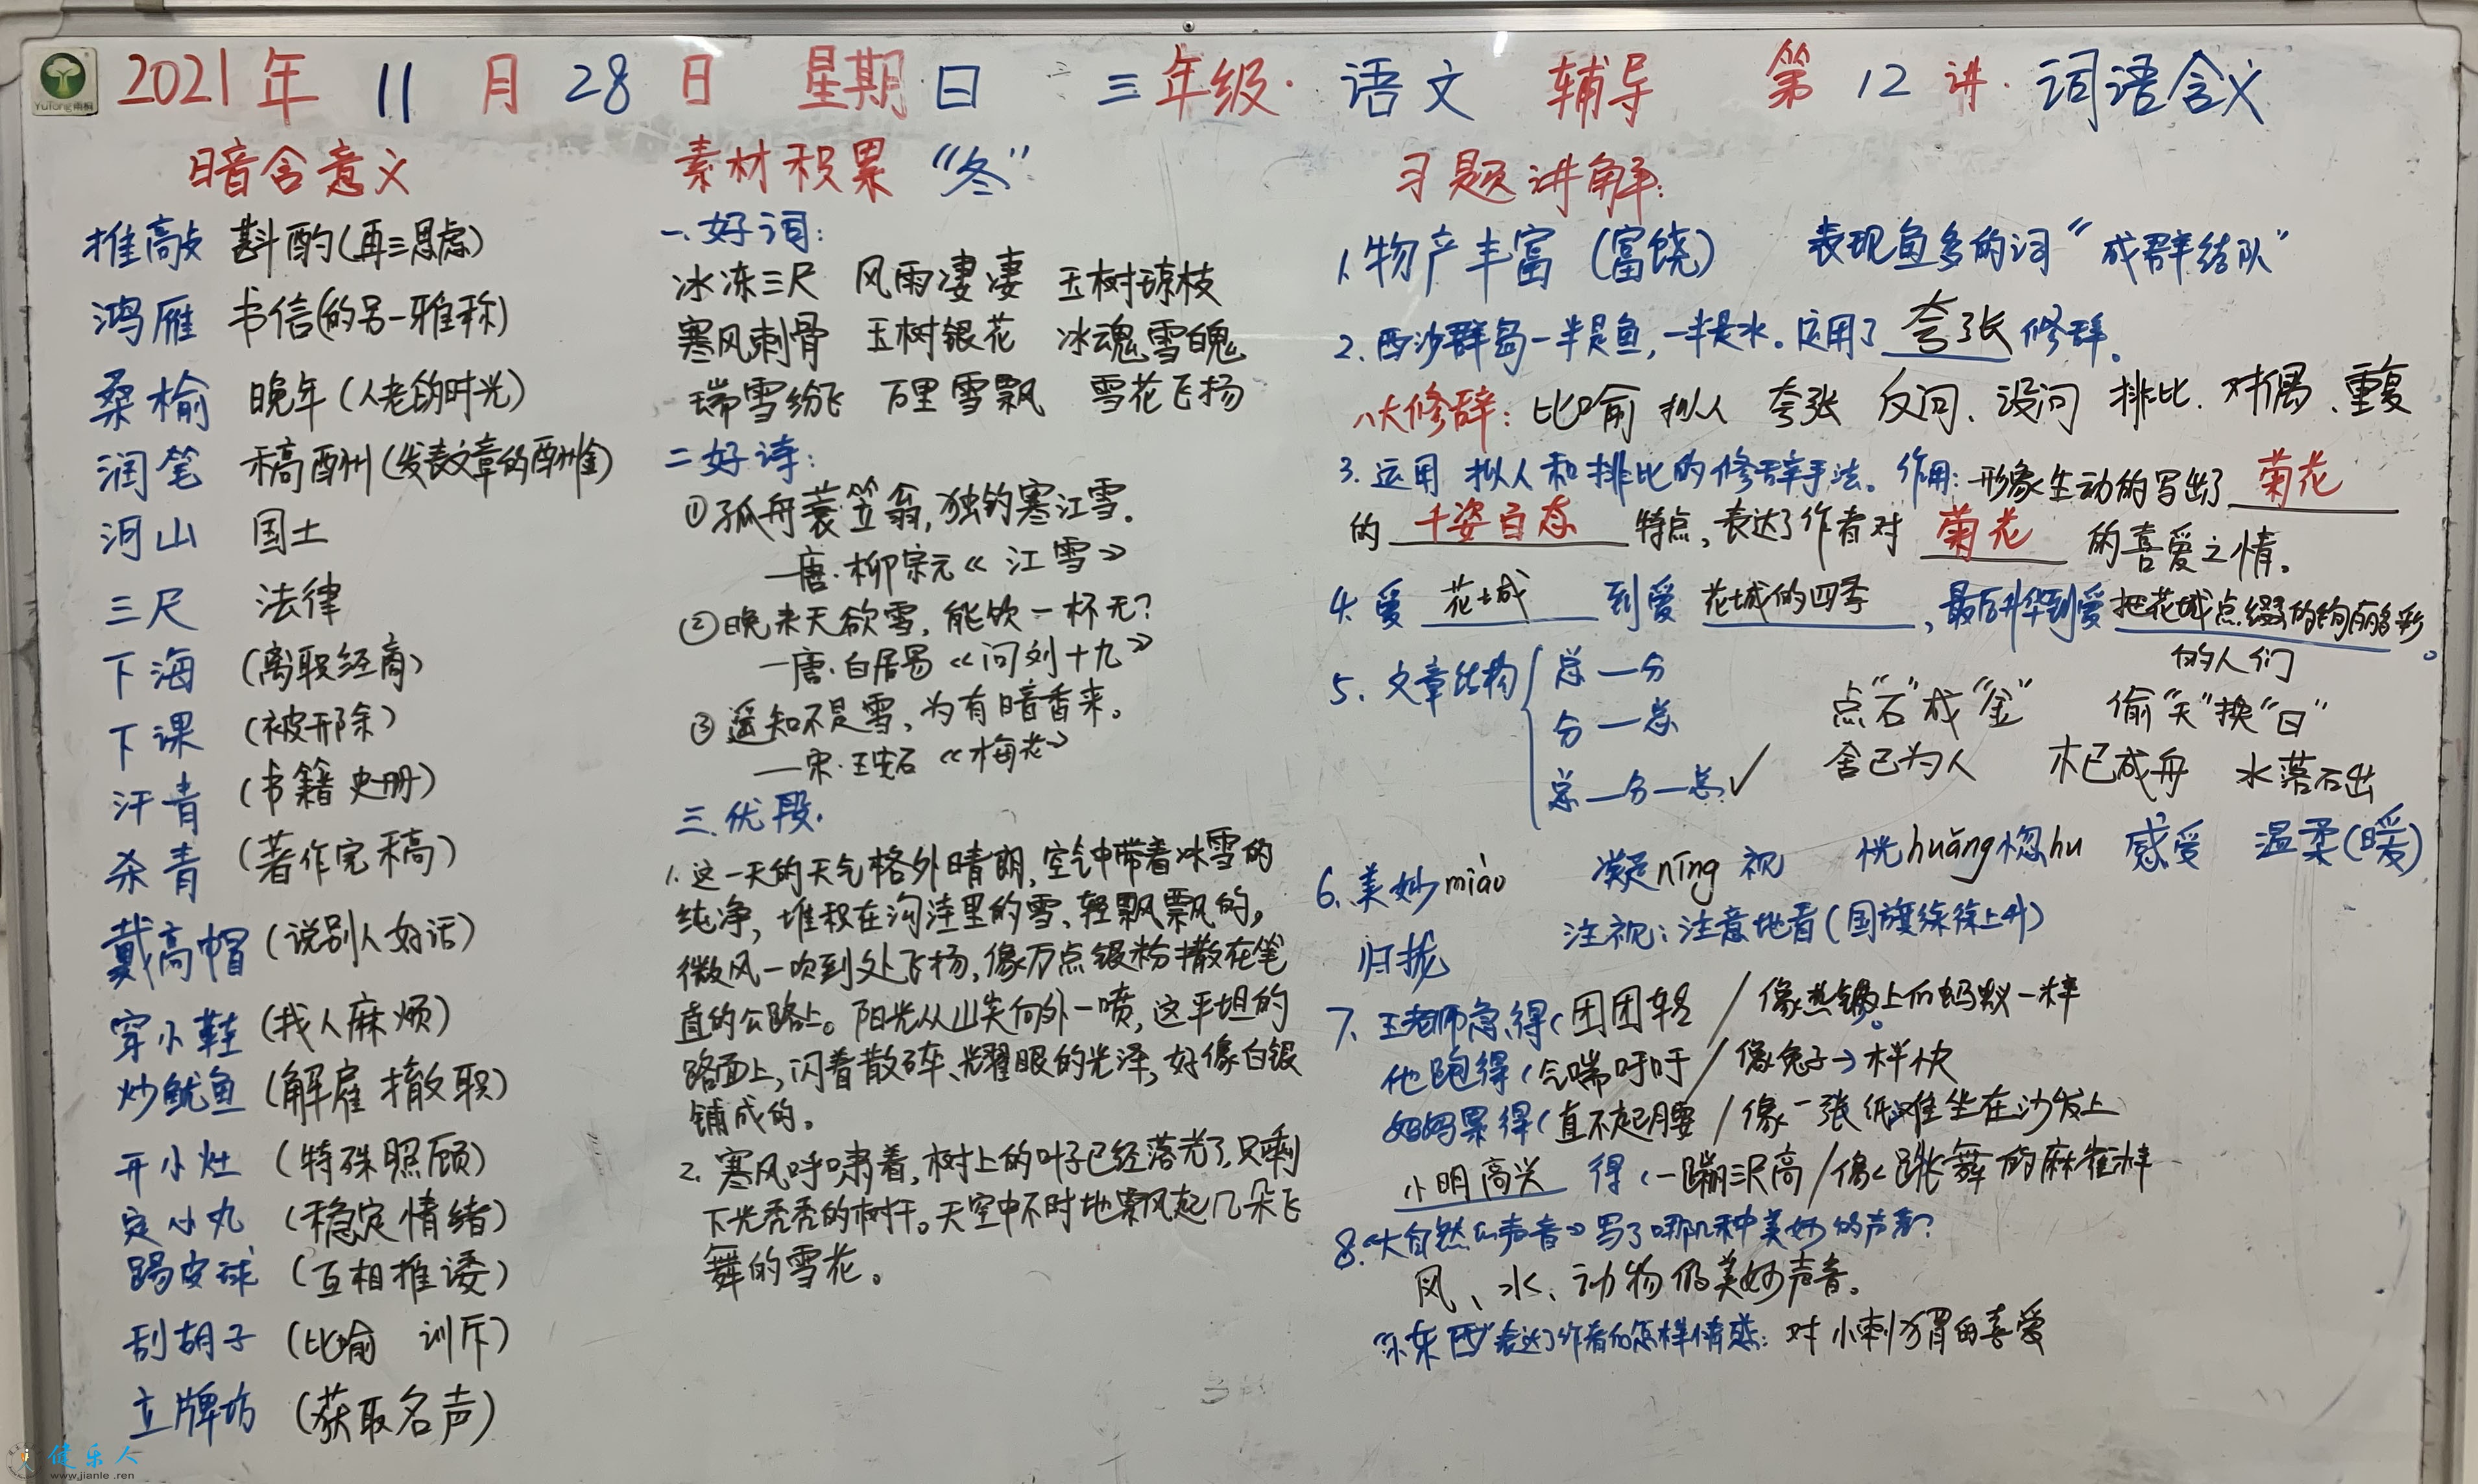 2021年 11 月 28 日 星期日 三年级· 语文 辅导 第 12 讲· 词语含义
YuTong雨桐
暗含意义
推敲 斟酌(再三思虑)
鸿雁 书信(的另一雅称)
桑榆 晚年(人老的时光)
润笔 稿酬(发表文章的酬金)
河山 国土
三尺 法律
下海 (离职经商)
下课 (被开除)
汗青 (书籍 史册)
杀青 (著作完稿)
戴高帽 (说别人好话)
穿小鞋 (找人麻烦)
炒鱿鱼 (解雇 撤职)
开小灶 (特殊照顾)
定心丸 (稳定情绪)
踢皮球 (互相推诿)
刮胡子 (比喻 训斥)
立牌坊 (获取名声)
素材积累 “冬”
一、好词:
冰冻三尺 风雨凄凄 玉树琼枝
寒风刺骨 玉树银花 冰魂雪魄
瑞雪纷飞 万里雪飘 雪花飞扬
二 好诗:
①孤舟蓑笠翁,独钓寒江雪.
—唐·柳宗元《江雪》
②晚来天欲雪,能饮一杯无?
—唐·白居易《问刘十九》
③遥知不是雪,为有暗香来。
——宋·王安石《梅花》
三.优段.
1.这一天的天气格外晴朗,空气中带着冰雪的
纯净,堆积在沟洼里的雪、轻飘飘的,
微风一吹到处飞扬,像万点银粉撒在笔
直的公路上。阳光从山尖向外一喷,这平坦的
路面上,闪着散碎、耀眼的光泽,好像白银
铺成的。
2.寒风呼啸着,树上的叶子已经落光了,只剩
下光秃秃的树干。天空中不时地飘起几朵飞
舞的雪花。
习题讲解:
1.物产丰富(富饶) 表现鱼多的词“成群结队”
2.西沙群岛一半是鱼,一半是水。运用了 夸张 修辞。
八大修辞:比喻 拟人 夸张 反问、设问 排比、对偶、重复
3.运用 拟人和排比的修辞手法。作用:形象生动的写出了 菊花
的 千姿百态 特点,表达了作者对 菊花 的喜爱之情。
4.爱 花城 到爱 花城的四季,最后升华到爱把花城点缀的绚丽多彩
的人们。
5.文章结构 总—分
分—总
总—分—总✓
点“石”成“金” 偷“天”换“日”
舍己为人 木已成舟 水落石出
6.美妙miào 凝níng视 恍huǎng惚hu 感受 温柔(暖)
归拢 注视:注意地看(国旗徐徐上升)
7.王老师急得(团团转/像热锅上的蚂蚁一样
他跑得(气喘吁吁/像兔子一样快
妈妈累得(直不起腰/像一张纸瘫坐在沙发上
小明高兴 得(一蹦三尺高/像跳舞的麻雀样
8.《大自然的声音》写了哪几种美妙的声音?
风、水、动物的美妙声音。
“小东西”表达了作者的怎样情感:对小刺猬的喜爱
健乐人
www.jianle.ren